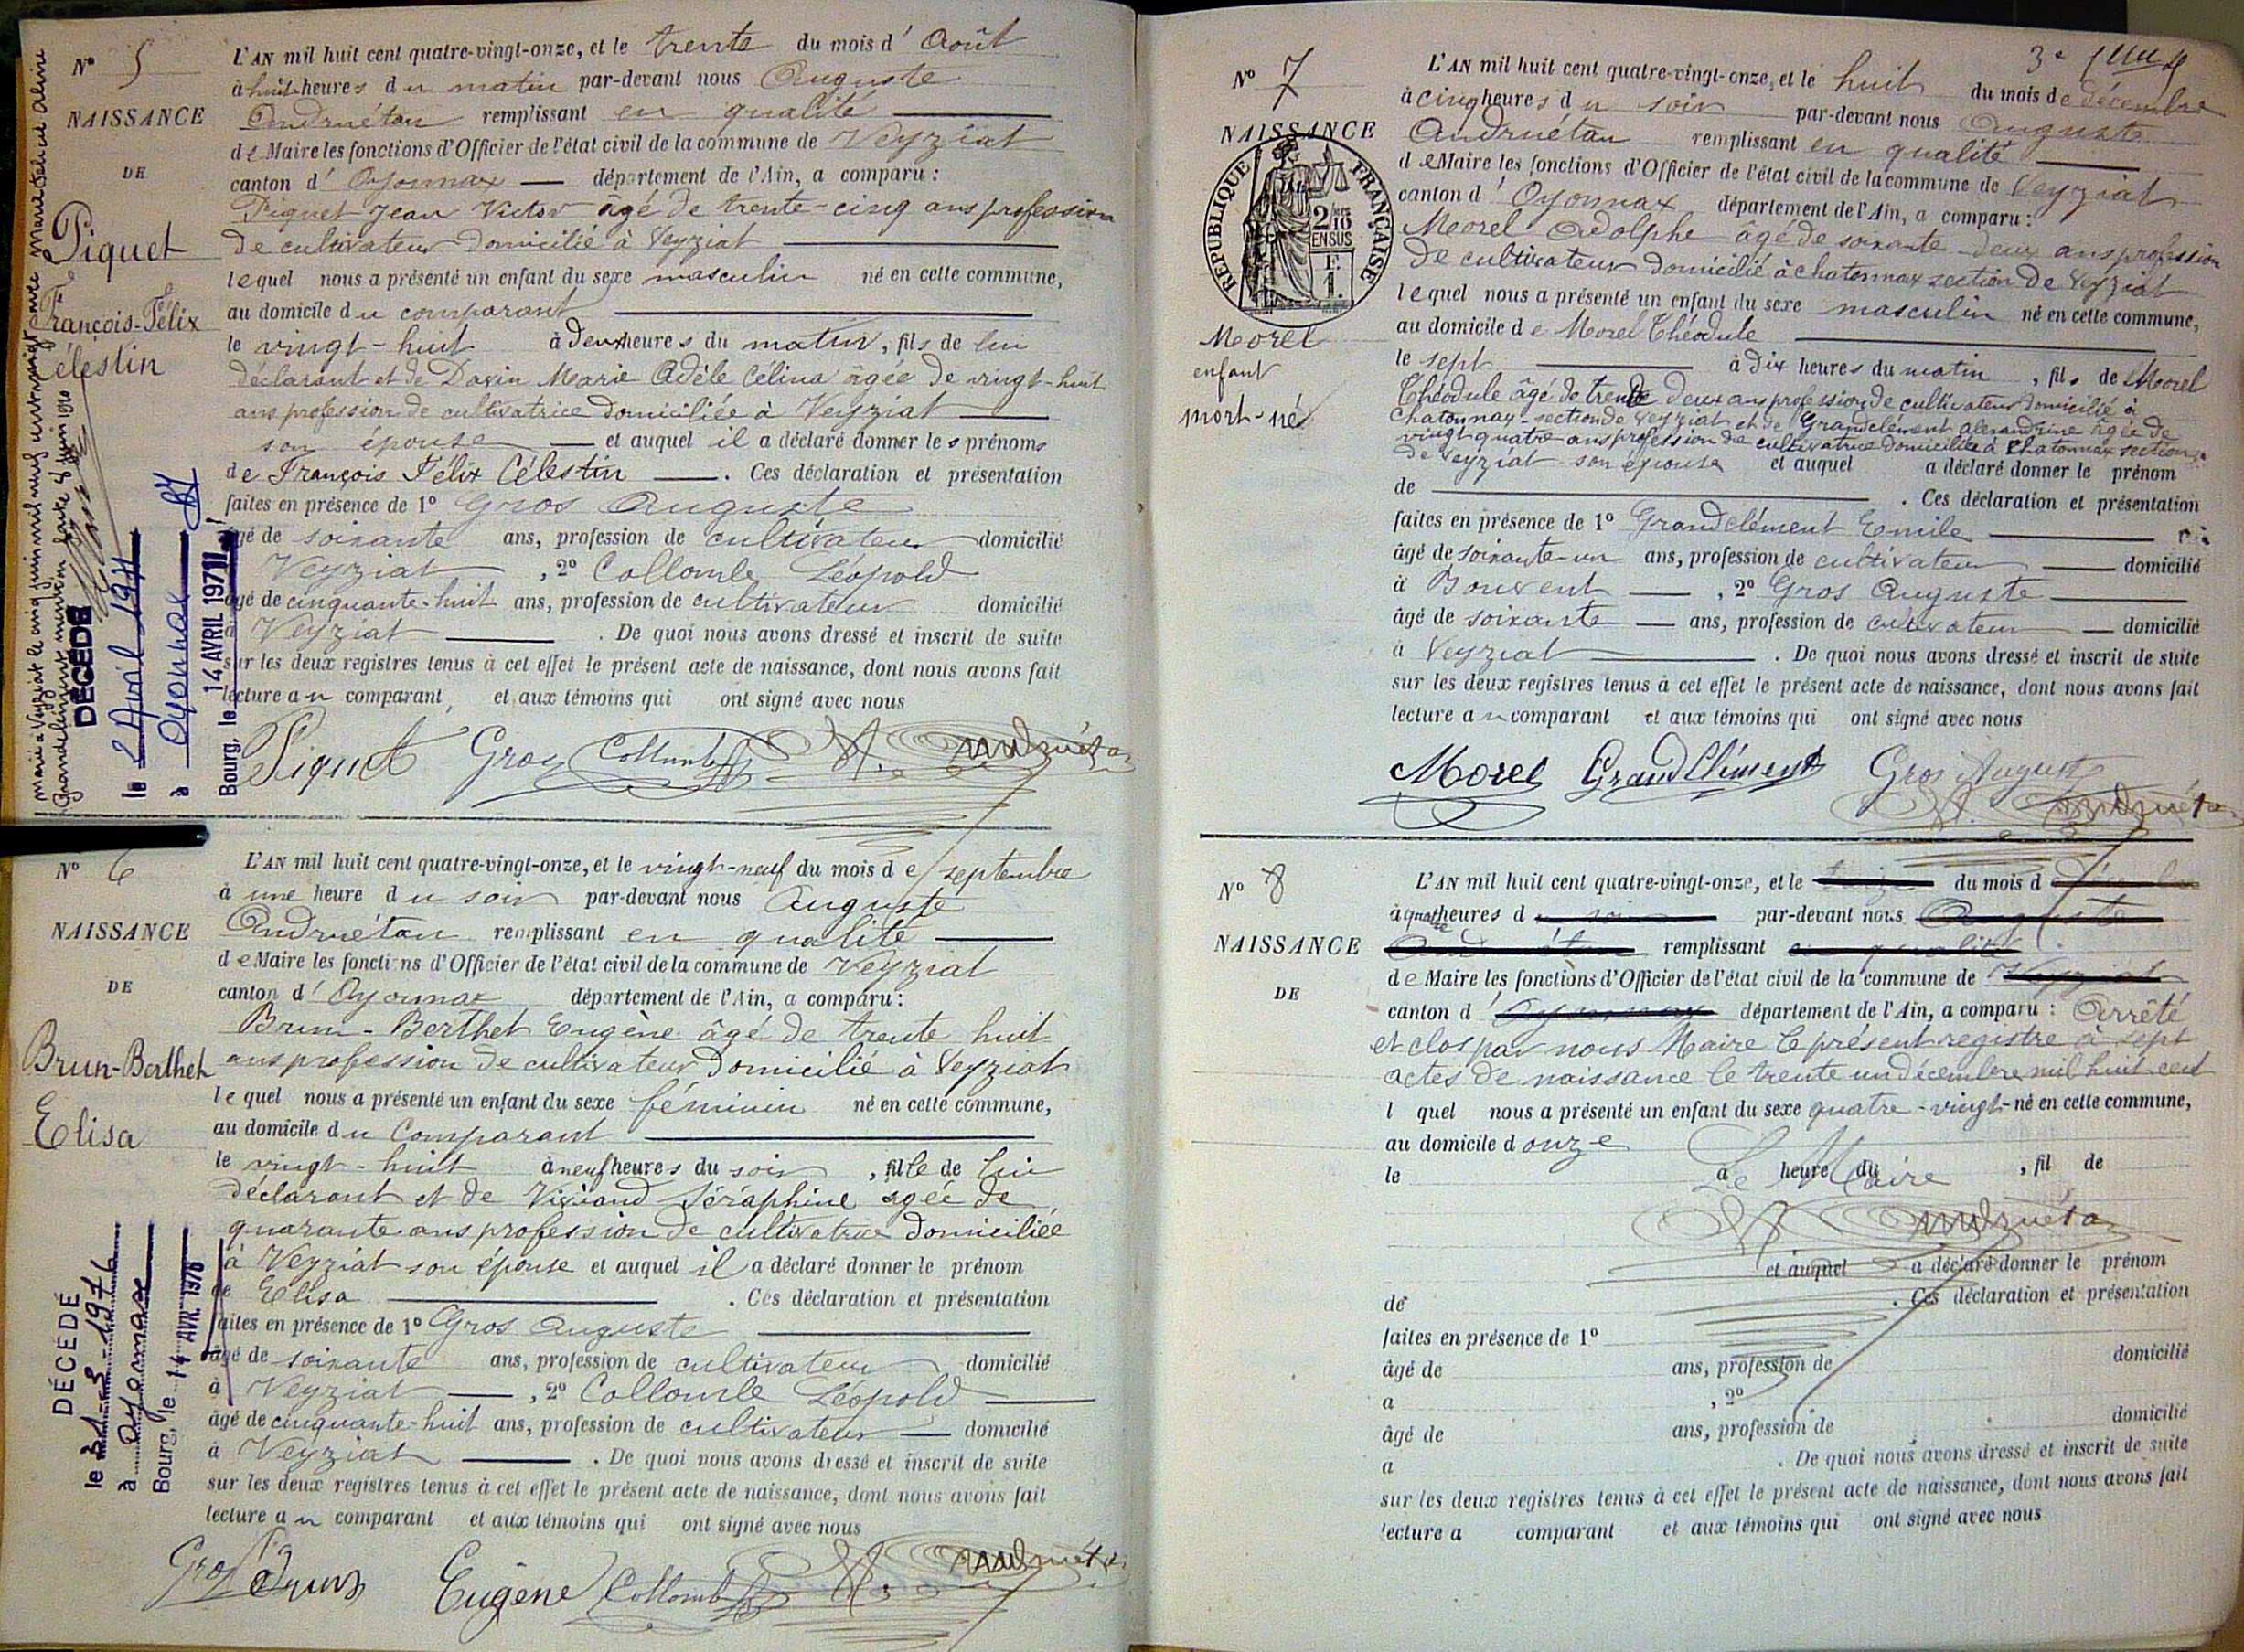 N° 5
NAISSANCE
DE
Piquet
François-Félix
Célestin
marié à Veyziat le cinq juin mil neuf cent vingt avec Marie Alexandrine
Grandclément mention faite le juin 1920
DÉCÉDÉ
le 2 Avril 1971
à Oyonnax
Bourg, le 14 AVRIL 1971
L'AN mil huit cent quatre-vingt-onze, et le trente du mois d'Août
à huit heures du matin par-devant nous Auguste
Andruétan remplissant en qualité
de Maire les fonctions d'Officier de l'état civil de la commune de Veyziat
canton d'Oyonnax département de l'Ain, a comparu :
Piquet Jean Victor âgé de trente-cinq ans profession
de cultivateur domicilié à Veyziat
lequel nous a présenté un enfant du sexe masculin né en cette commune,
au domicile du comparant
le vingt-huit à deux heures du matin, fils de lui
déclarant et de Davin Marie Adèle Célina âgée de vingt-huit
ans profession de cultivatrice domiciliée à Veyziat
son épouse et auquel il a déclaré donner les prénoms
de François Félix Célestin . Ces déclaration et présentation
faites en présence de 1° Gros Auguste
âgé de soixante ans, profession de cultivateur domicilié
Veyziat , 2° Collomb Léopold
âgé de cinquante-huit ans, profession de cultivateur domicilié
à Veyziat . De quoi nous avons dressé et inscrit de suite
sur les deux registres tenus à cet effet le présent acte de naissance, dont nous avons fait
lecture au comparant, et aux témoins qui ont signé avec nous
Piquet Gros Collomb Andruétan
N° 6
NAISSANCE
DE
Brun-Berthet
Elisa
DÉCÉDÉ
le 31-3 1976
à Oyonnax
Bourg, le 14 AVR. 1976
L'AN mil huit cent quatre-vingt-onze, et le vingt-neuf du mois de septembre
à une heure du soir par-devant nous Auguste
Andruétan remplissant en qualité
de Maire les fonctions d'Officier de l'état civil de la commune de Veyziat
canton d'Oyonnax département de l'Ain, a comparu :
Brun-Berthet Eugène âgé de trente huit
ans profession de cultivateur domicilié à Veyziat
lequel nous a présenté un enfant du sexe féminin né en cette commune,
au domicile du Comparant
le vingt-huit à neuf heures du soir, fille de lui
déclarant et de Viviand Séraphine agée de
quarante ans profession de cultivatrice domiciliée
à Veyziat son épouse et auquel il a déclaré donner le prénom
de Elisa . Ces déclaration et présentation
faites en présence de 1° Gros Auguste
âgé de soixante ans, profession de cultivateur domicilié
à Veyziat , 2° Collomb Léopold
âgé de cinquante-huit ans, profession de cultivateur domicilié
à Veyziat . De quoi nous avons dressé et inscrit de suite
sur les deux registres tenus à cet effet le présent acte de naissance, dont nous avons fait
lecture au comparant et aux témoins qui ont signé avec nous
Gros Brun Eugène Collomb Andruétan
N° 7
NAISSANCE
RÉPUBLIQUE FRANÇAISE
2/10 EN SUS
Morel
enfant
mort-né
L'AN mil huit cent quatre-vingt-onze, et le huit du mois de décembre
à cinq heures du soir par-devant nous Auguste
Andruétan remplissant en qualité
de Maire les fonctions d'Officier de l'état civil de la commune de Veyziat
canton d'Oyonnax département de l'Ain, a comparu :
Morel Adolphe âgé de soixante-deux ans profession
de cultivateur domicilié à chatonnax section de Veyziat
lequel nous a présenté un enfant du sexe masculin né en cette commune,
au domicile de Morel Théodule
le sept à dix heures du matin, fils de Morel
Théodule âgé de trente deux ans profession de cultivateur domicilié à
Chatonnax-section de Veyziat et de Grandclément Alexandrine âgée de
vingt quatre ans profession de cultivatrice domiciliée à Chatonnax section
de Veyziat son épouse et auquel a déclaré donner le prénom
de . Ces déclaration et présentation
faites en présence de 1° Grandclément Emile
âgé de soixante-un ans, profession de cultivateur domicilié
à Bouvent , 2° Gros Auguste
âgé de soixante ans, profession de cultivateur domicilié
à Veyziat . De quoi nous avons dressé et inscrit de suite
sur les deux registres tenus à cet effet le présent acte de naissance, dont nous avons fait
lecture au comparant et aux témoins qui ont signé avec nous
Morel GrandClément Gros Auguste Andruétan
N° 8
NAISSANCE
DE
L'AN mil huit cent quatre-vingt-onze, et le du mois d
à quatre heures d par-devant nous Auguste
remplissant en qualité
de Maire les fonctions d'Officier de l'état civil de la commune de Veyziat
canton d'Oyonnax département de l'Ain, a comparu : Arrêté
et clos par nous Maire le présent registre à sept
actes de naissance le trente un décembre mil huit cent
l quel nous a présenté un enfant du sexe quatre-vingt- né en cette commune,
au domicile d onze
le à heure du , fil de
Le Maire
Andruétan
et auquel a déclaré donner le prénom
de . Ces déclaration et présentation
faites en présence de 1°
âgé de ans, profession de domicilié
à , 2°
âgé de ans, profession de domicilié
à . De quoi nous avons dressé et inscrit de suite
sur les deux registres tenus à cet effet le présent acte de naissance, dont nous avons fait
lecture a comparant et aux témoins qui ont signé avec nous